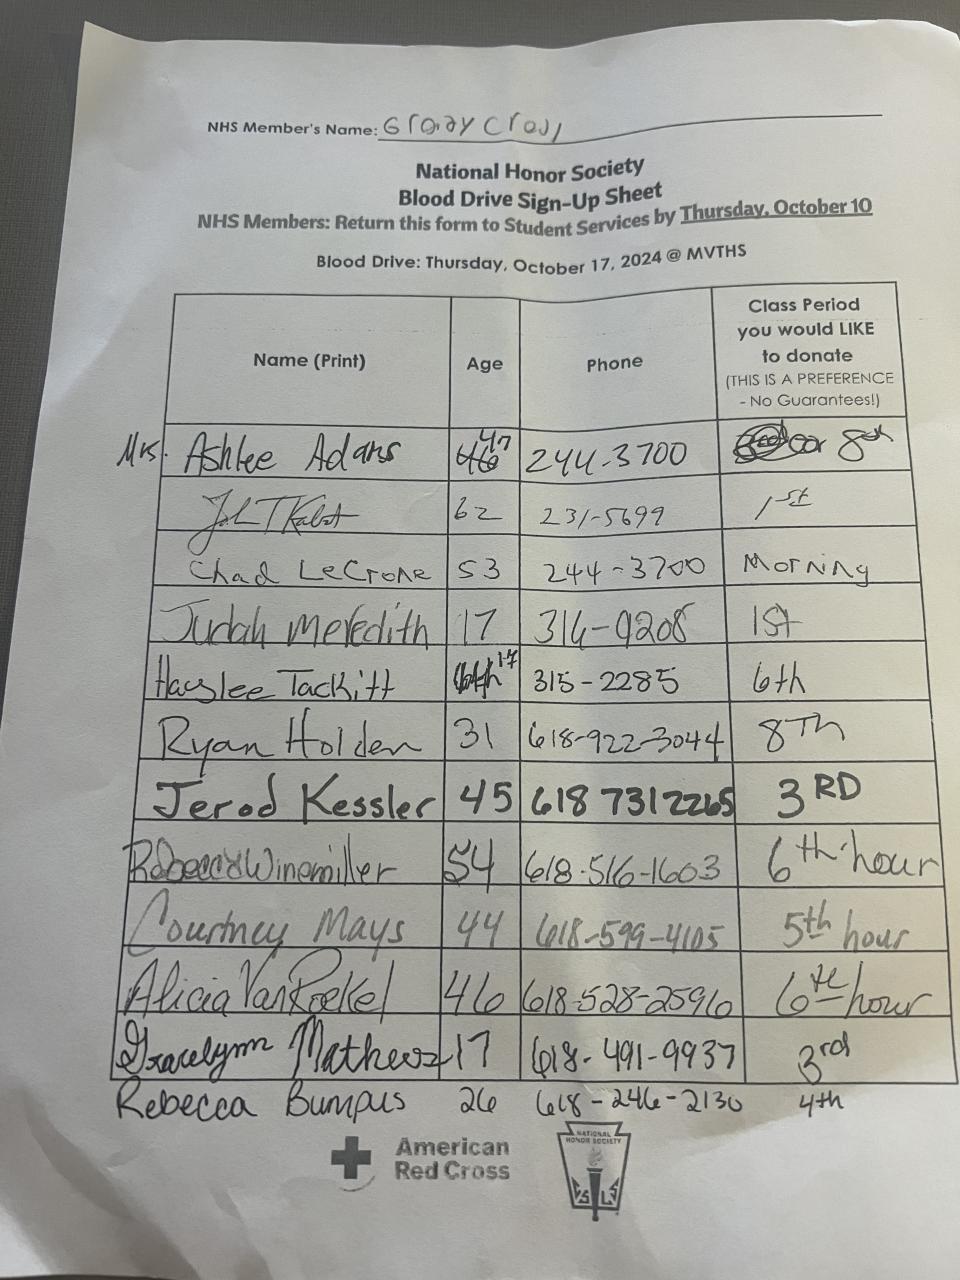 NHS Member's Name: Grady
National Honor Society
Blood Drive Sign-Up Sheet
NHS Members: Return this form to Student Services by Thursday, October 10
Blood Drive: Thursday, October 17, 2024 @ MVTHS
Name (Print) Age Phone Class Period you would LIKE to donate (THIS IS A PREFERENCE - No Guarantees!)
Mrs. Ashlee Adams 47 244-3700 or 8th
62 231-5699 1st
Chad LeCrone 53 244-3700 Morning
Judah Meredith 17 316-9208 1st
Hayslee Tackitt 17 315-2285 6th
Ryan Holden 31 618-922-3044 8Th
Jerod Kessler 45 618 731 2265 3RD
Rebecca Winemiller 54 618-516-1603 6th hour
Courtney Mays 44 618-599-4105 5th hour
Alicia VanRoekel 46 618-528-2596 6th hour
Gracelynn Mathews 17 618-491-9937 3rd
Rebecca Bumpus 26 618-246-2130 4th
American
Red Cross
NATIONAL
HONOR SOCIETY